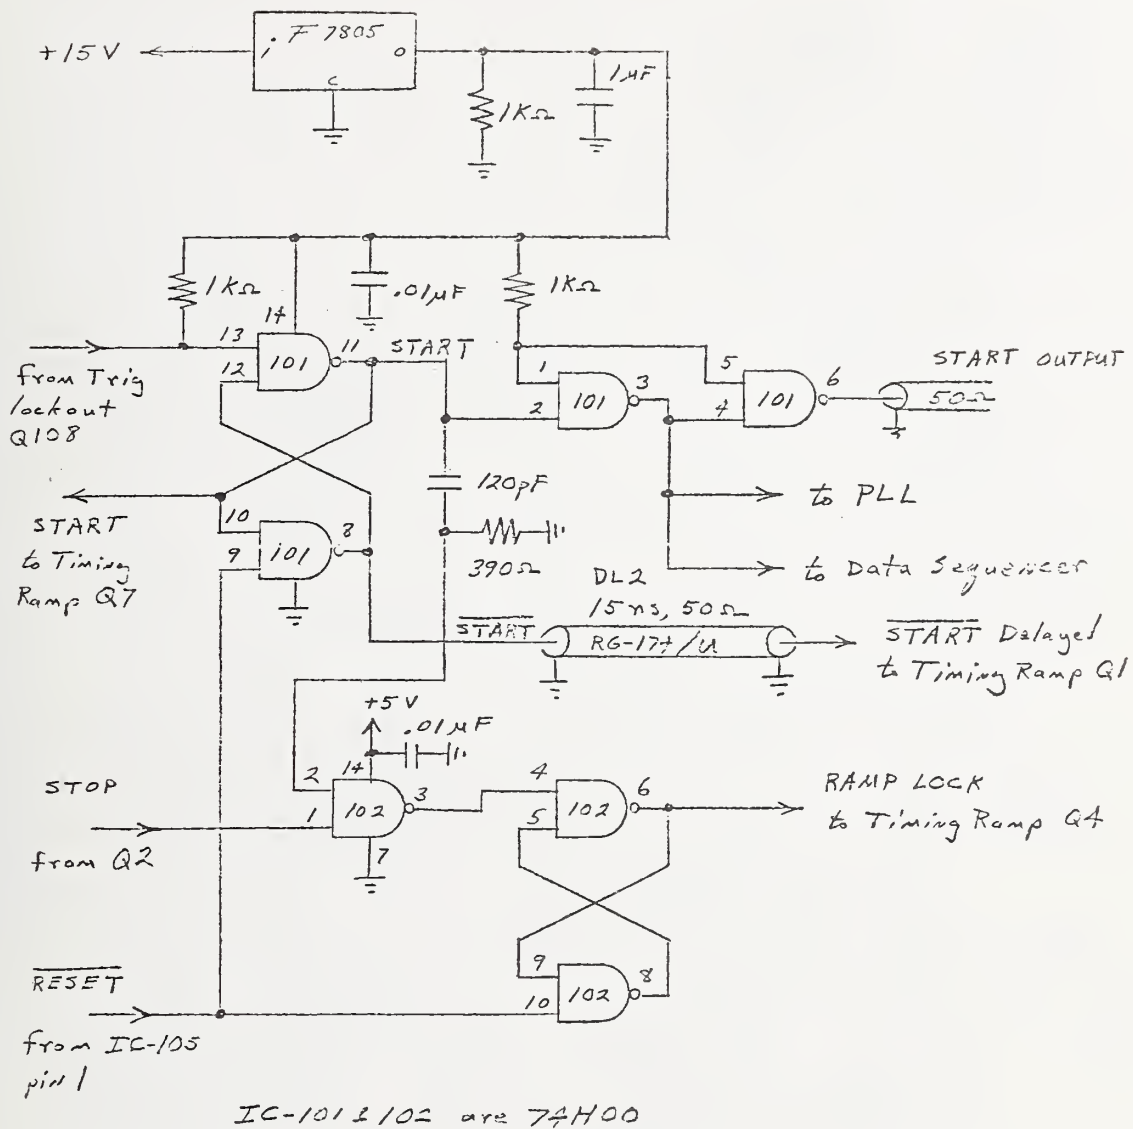 F 7805
+15V
i
o
c
1KΩ
1μF
1KΩ
.01μF
1KΩ
14
13
12
101
11
START
from Trig
lockout
Q108
1
2
101
3
5
4
101
6
START OUTPUT
50Ω
120pF
390Ω
to PLL
to Data Sequencer
START
to Timing
Ramp Q7
10
9
101
8
START
DL2
15ns, 50Ω
RG-174/U
START Delayed
to Timing Ramp Q1
+5V
.01μF
STOP
from Q2
2
1
14
102
3
7
4
5
102
6
RAMP LOCK
to Timing Ramp Q4
RESET
from IC-105
pin 1
9
10
102
8
IC-101 & 102 are 74H00